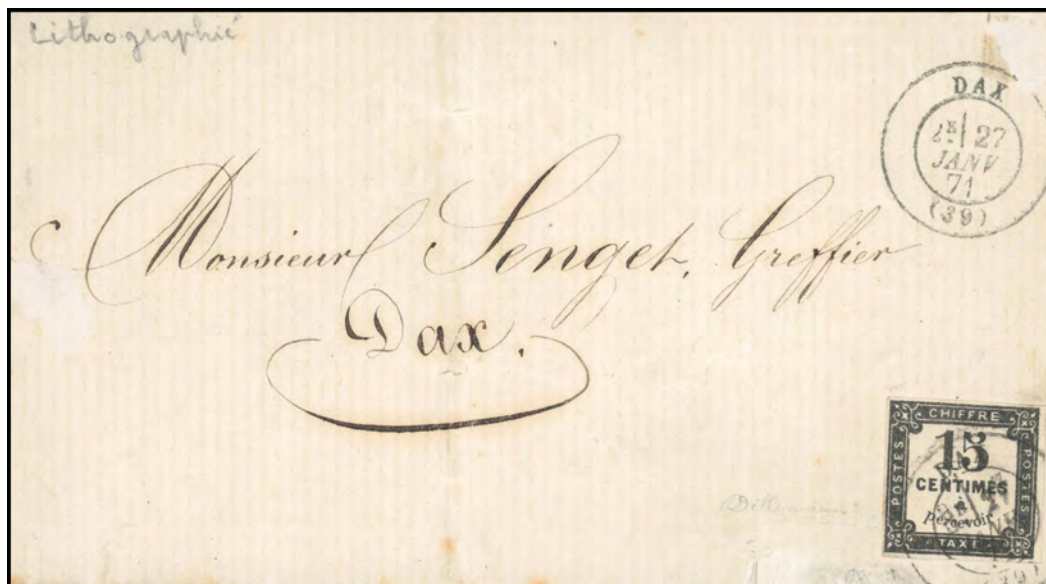 Lithographié
DAX
2E 27
JANV
71
(39)
Monsieur Senget, Greffier
Dax.
CHIFFRE
POSTES
15
CENTIMES
à
percevoir
POSTES
TAXE